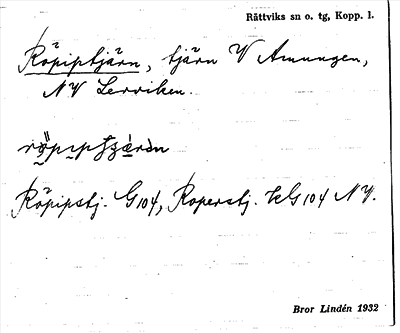 Rättviks sn o. tg, Kopp. l.
Röpiptjärn, tjärn V Amungen,
NV Lerviken.
Röpipstj. G104, Roperstj. G104 NV.
Bror Lindén 1932